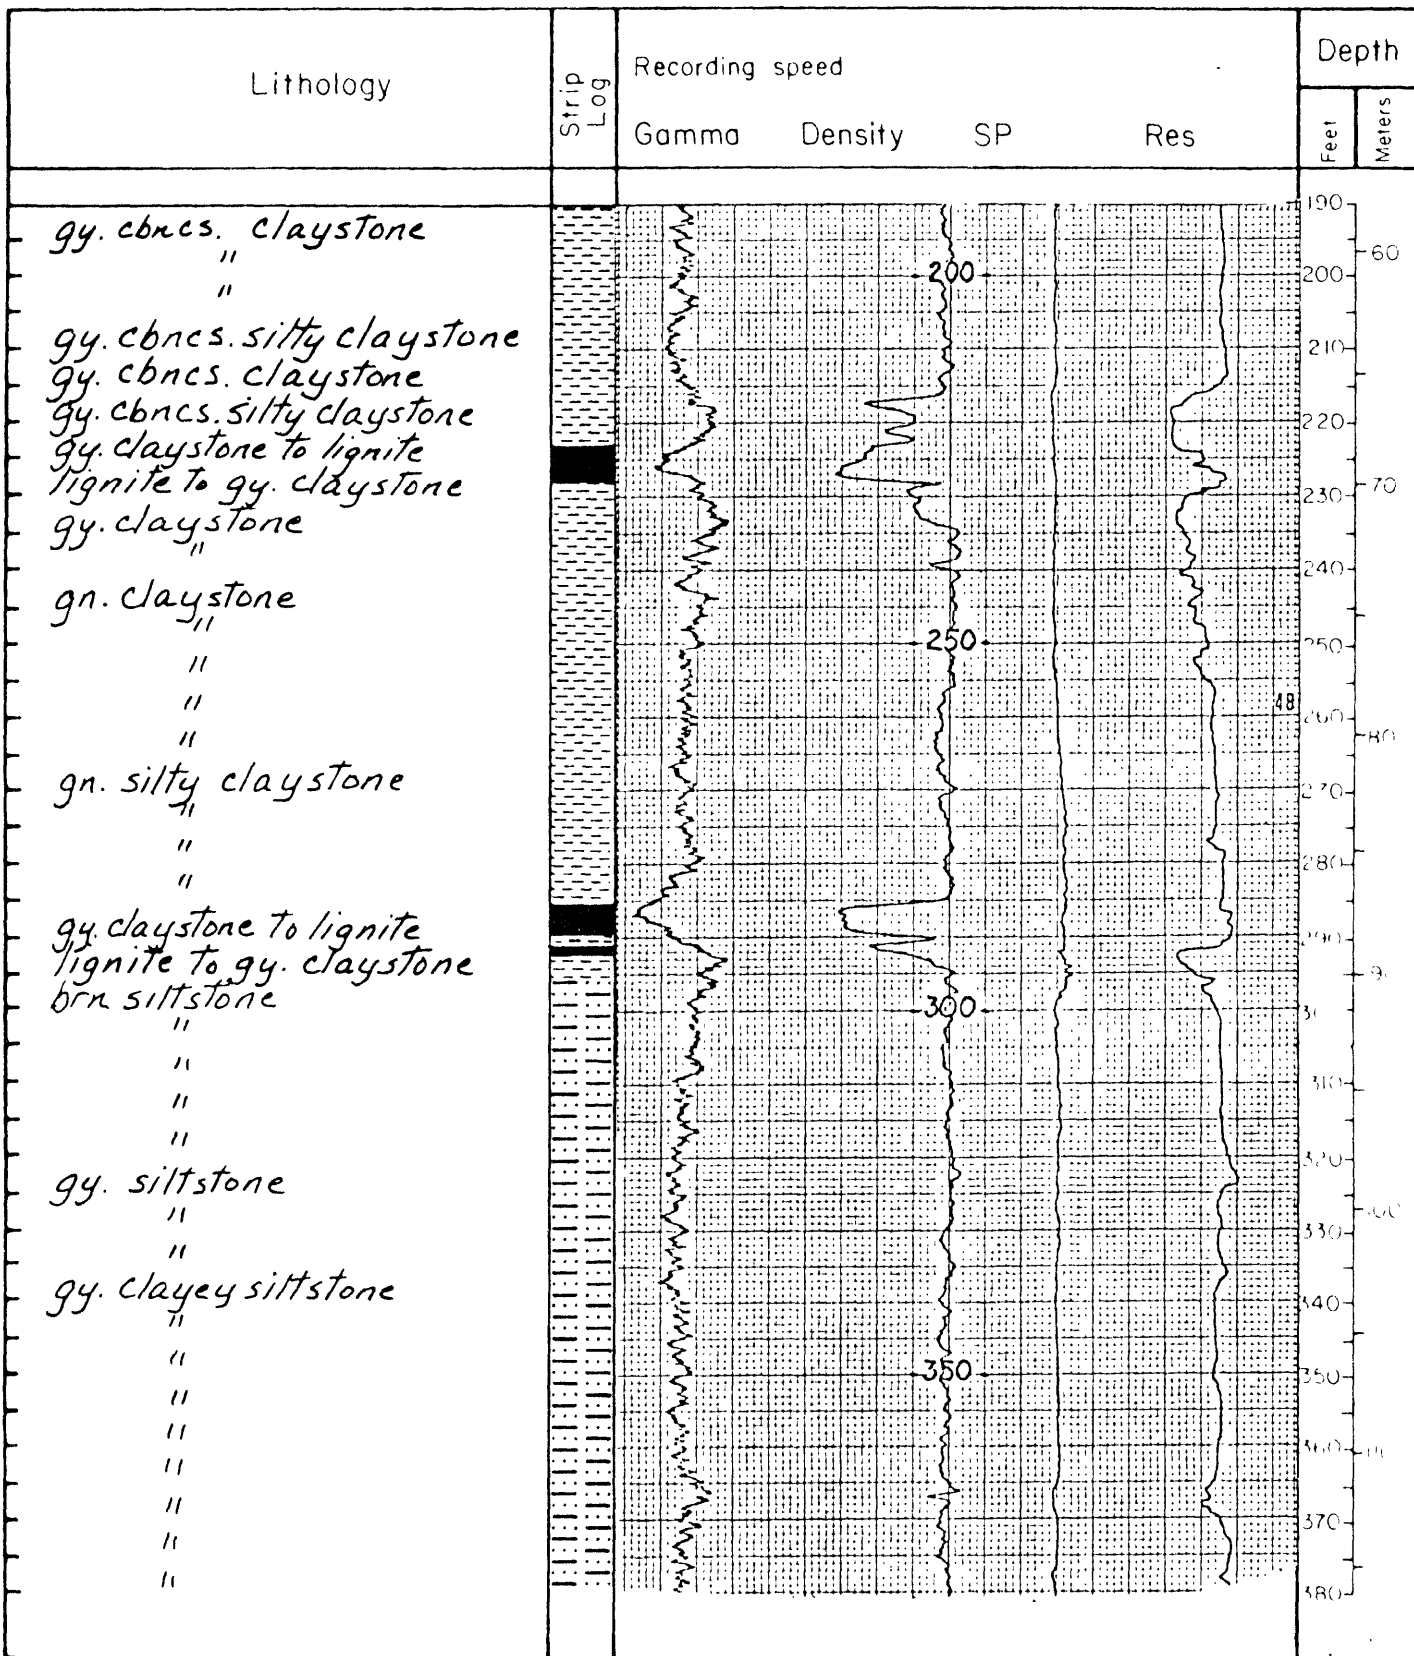 Lithology
Strip Log
Recording speed
Gamma Density SP Res
Depth
Feet
Meters
gy. cbncs. claystone
"
"
gy. cbncs. silty claystone
gy. cbncs. claystone
gy. cbncs. silty claystone
gy. claystone to lignite
lignite to gy. claystone
gy. claystone
"
gn. claystone
"
"
"
"
gn. silty claystone
"
"
"
gy. claystone to lignite
lignite to gy. claystone
brn siltstone
"
"
"
"
gy. siltstone
"
"
gy. clayey siltstone
"
"
"
"
"
"
"
"
200
250
300
350
48
190
200
210
220
230
240
250
260
270
280
290
310
320
330
340
350
360
370
380
60
70
80